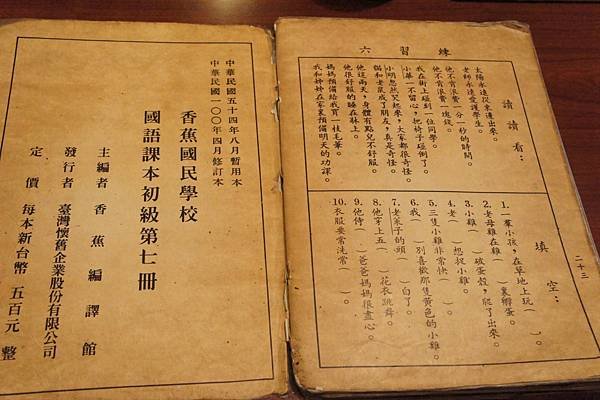 練習六
請讀看:
太陽永遠從東邊出來。
老師永遠愛護學生。
他不肯浪費一分一秒的時間。
他不肯浪費一塊錢。
我在街上碰到一位同學。
小華一不留心,把椅子碰倒了。
小明忽然哭起來,大家都很奇怪。
貓和老鼠成了朋友,真是奇怪。
他這兩天,身體有點兒不舒服。
他很舒服的睡在牀上。
媽媽預備給我買一枝毛筆。
我和姊姊在家裏預備明天的功課。
填空:
1.一羣小孩,在草地上玩( )。
2.老母雞在雞( )裏孵蛋。
3.小雞( )破蛋殼,爬了出來。
4.老( )想捉小雞。
5.三隻小雞非常快( )。
6.我( )別喜歡那隻黃色的小雞。
7.老菜子的頭( )白了。
8.他穿上五( )花衣跳舞。
9.他侍( )爸爸媽媽很盡心。
10.衣服要常洗常( )。
二十三
中華民國五十四年八月暫用本
中華民國一○○年四月修訂本
香蕉國民學校
國語課本初級第七冊
主編者 香蕉編譯館
發行者 臺灣懷舊企業股份有限公司
定價 每本新台幣 五百元 整